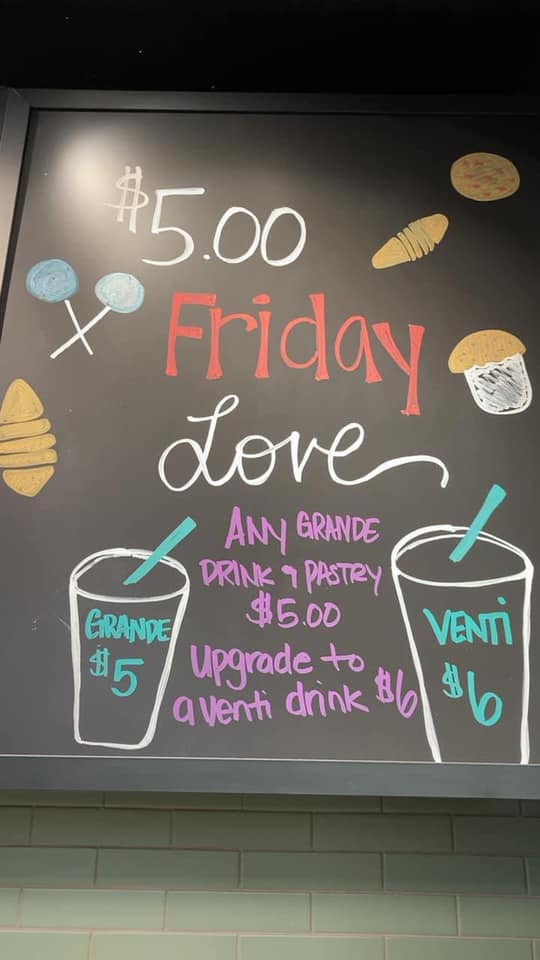 $5.00
Friday
Love
ANY GRANDE
DRINK & PASTRY
$5.00
Upgrade to
a venti drink $6
GRANDE
$5
VENTi
$6